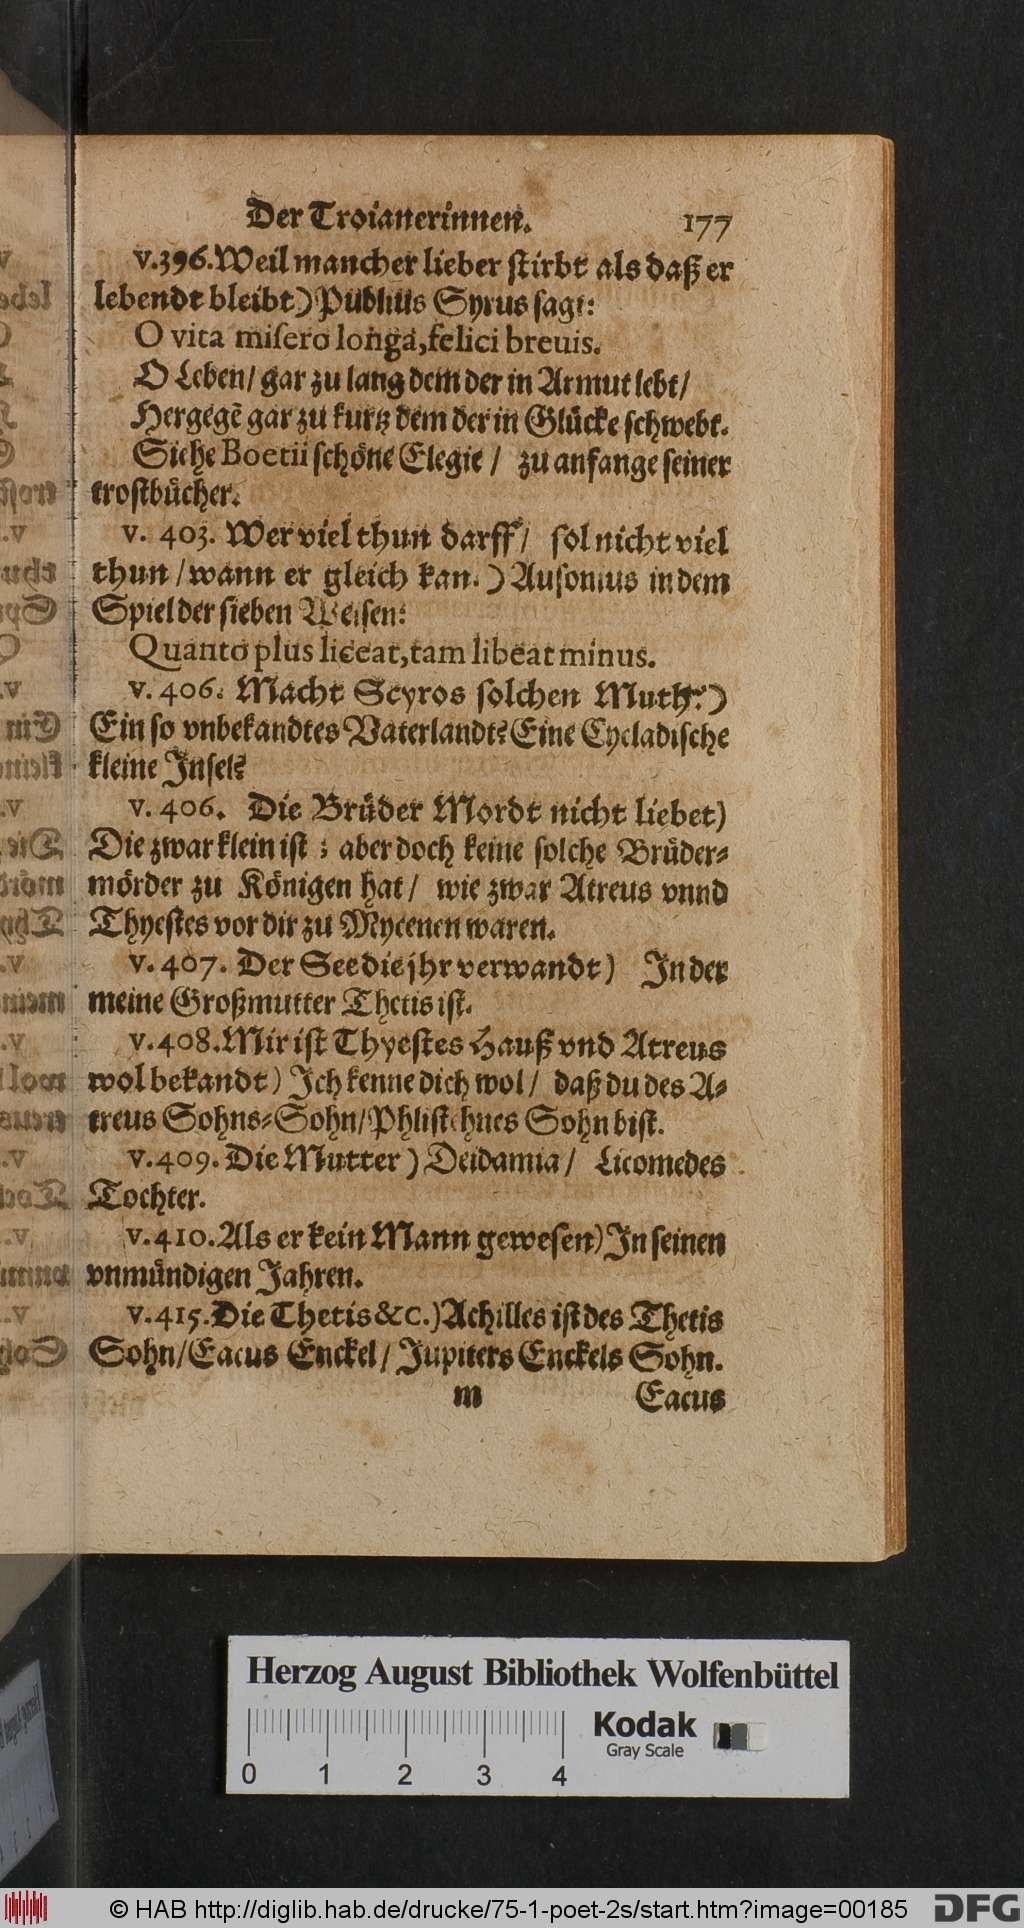 Der Troianerinnen. 177
v.396. Weil mancher lieber stirbt als daß er
lebendt bleibt) Publius Syrus sagt:
O vita misero longa, felici breuis.
O Leben/ gar zu lang dem der in Armut lebt/
Hergegē gar zu kurtz dem der in Glücke schwebt.
Siehe Boetii schöne Elegie / zu anfange seiner
trostbücher.
v. 403. Wer viel thun darff / sol nicht viel
thun / wann er gleich kan.) Ausonius in dem
Spiel der sieben Weisen:
Quanto plus liceat, tam libeat minus.
v. 406. Macht Scyros solchen Muth?)
Ein so vnbekandtes Vaterlandt? Eine Cycladische
kleine Insel?
v. 406. Die Brüder Mordt nicht liebet)
Die zwar klein ist ; aber doch keine solche Brüder-
mörder zu Königen hat / wie zwar Atreus vnnd
Thyestes vor dir zu Mycenen waren.
v. 407. Der See die jhr verwandt) In der
meine Großmutter Thetis ist.
v. 408. Mir ist Thyestes Hauß vnd Atreus
wol bekandt) Ich kenne dich wol / daß du des A-
treus Sohns-Sohn / Phlisthnes Sohn bist.
v. 409. Die Mutter) Deidamia / Licomedes
Tochter.
v. 410. Als er kein Mann gewesen) In seinen
vnmündigen Jahren.
v. 415. Die Thetis &c.) Achilles ist des Thetis
Sohn / Eacus Enckel / Jupiters Enckels Sohn.
m Eacus
Herzog August Bibliothek Wolfenbüttel
Kodak
Gray Scale
0 1 2 3 4
© HAB http://diglib.hab.de/drucke/75-1-poet-2s/start.htm?image=00185
DFG